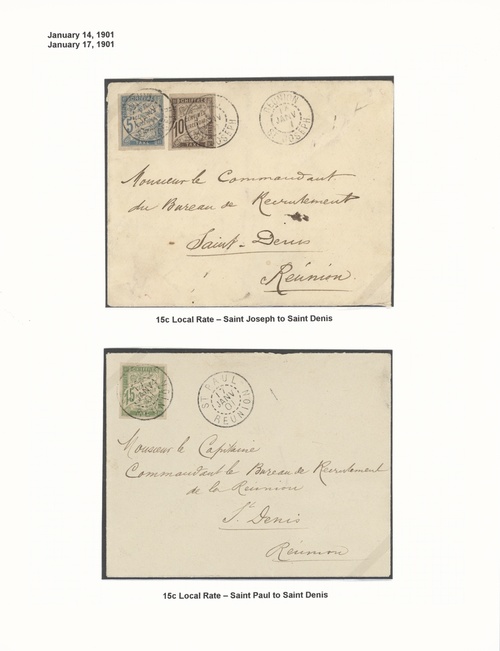 January 14, 1901
January 17, 1901
5
10
A PERCEVOIR
REUNION
JANV
ST JOSEPH
Monsieur le Commandant
du Bureau de Recrutement
Saint-Denis
Réunion.
15c Local Rate – Saint Joseph to Saint Denis
15
ST PAUL
17
JANV
01
REUNION
Monsieur le Capitaine
Commandant le Bureau de Recrutement
de la Reunion
St Denis
Réunion
15c Local Rate – Saint Paul to Saint Denis